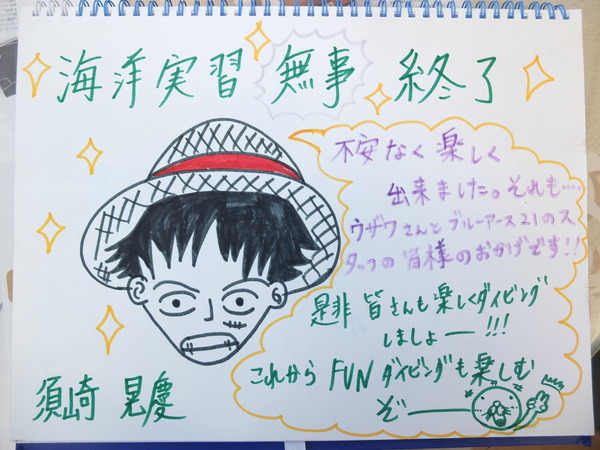 海洋実習 無事 終了
不安なく楽しく
出来ました。それも…。
ウザワさんとブルーアース21のス
タッフの皆様のおかげです!!
是非 皆さんも楽しくダイビング
しましょー!!!
これから FUN ダイビングも楽しむ
ぞー
須崎 晃慶